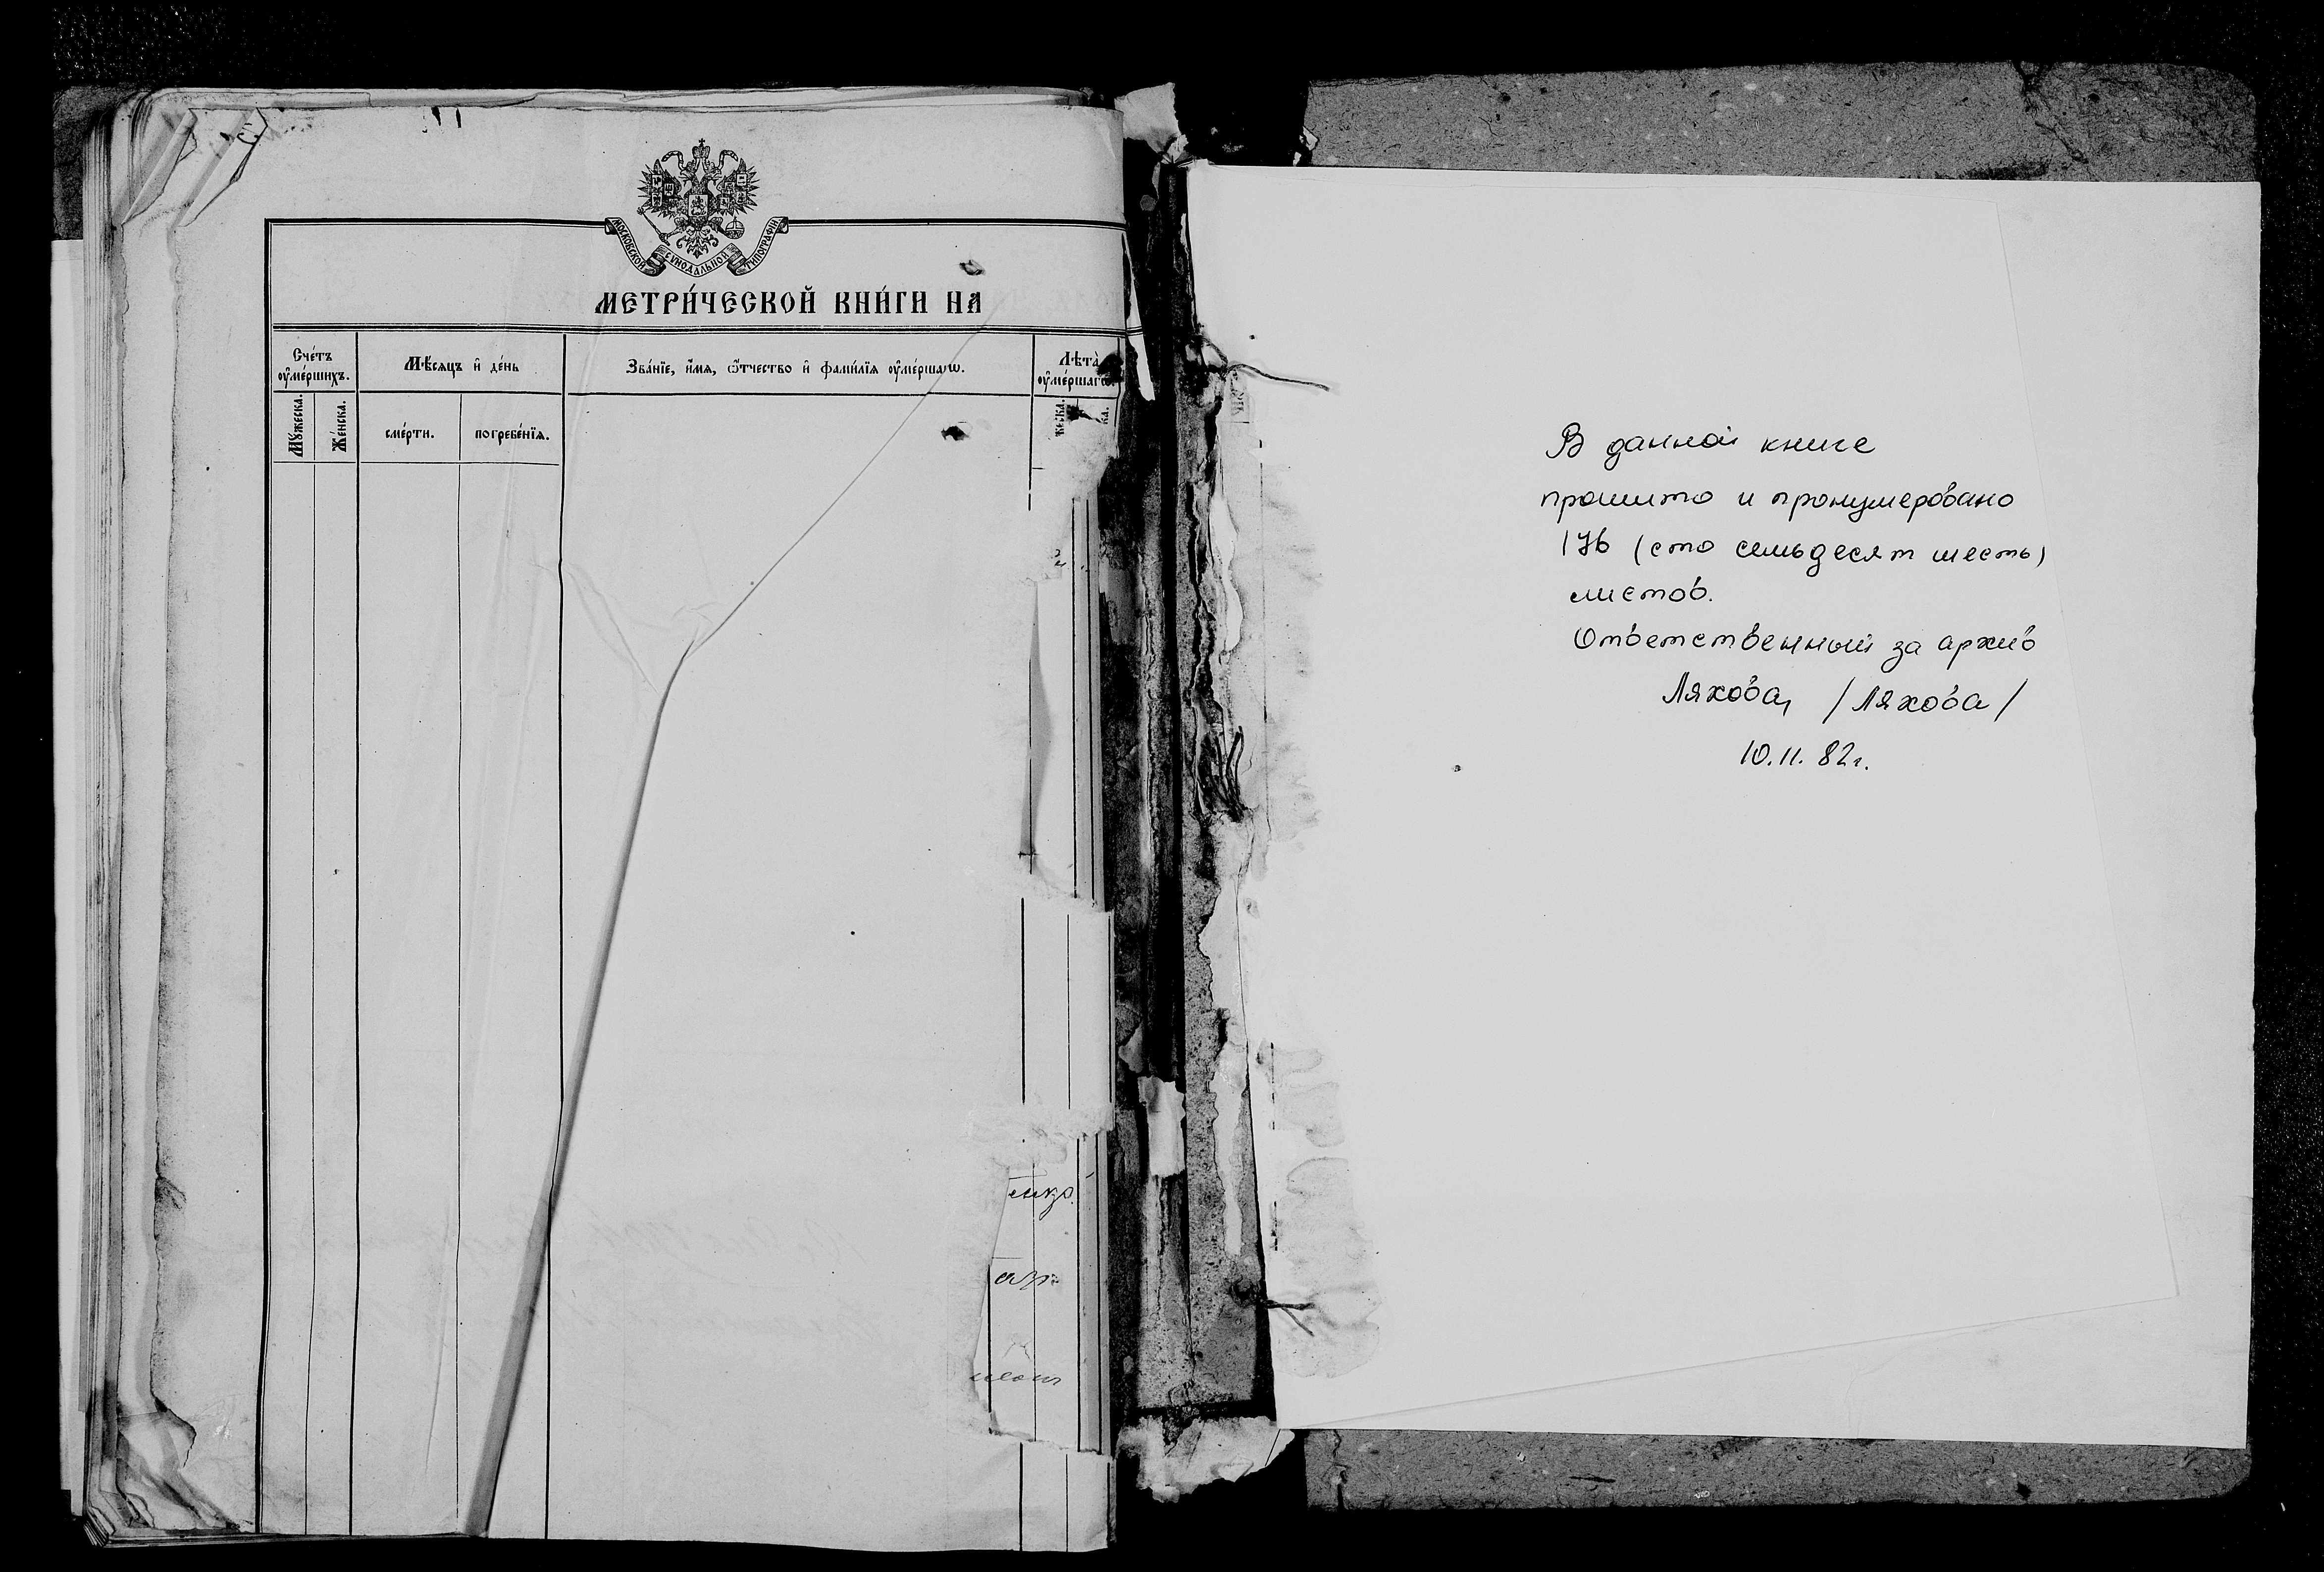 МОСКОВСКОЙ СѴНОДАЛЬНОЙ ТИПОГРАФІИ
МЕТРИ́ЧЕСКОЙ КНИ́ГИ НА
Сче́тъ
оу҆ме́ршихъ.
Мѣ́сяцъ и҆ де́нь
Зва́нїе, и҆́мя, ѻ҆́тчество и҆ фами́лїя оу҆ме́ршагѡ.
Лѣта̀
оу҆ме́ршагѡ.
Мꙋ́жеска.
Же́нска.
сме́рти.
погребе́нїя.
В данной книге
прошито и пронумеровано
176 (сто семьдесят шесть)
листов.
Ответственный за архив
Ляхова /Ляхова/
10.11.82г.